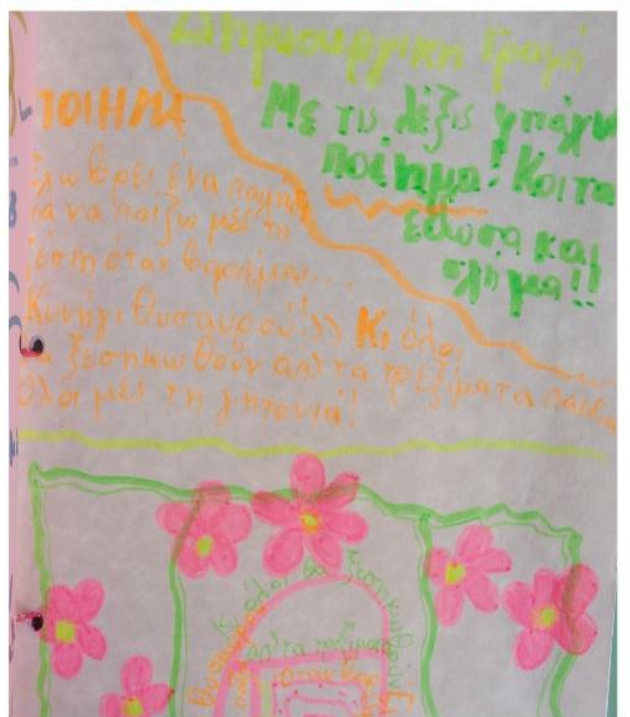 Δημιουργική Γραφή
Με τις λέξις φτιάχνω
ποίημα! Κοιτα
έδωσα και
σχήμα!!
ΠΟΙΗΜΑ
βρει ένα παιχνίδι
να παίζω μες τη
ζέστη όταν βαριέμαι...
Κυνήγι θυσαυρού!>> Κι όλοι
θα ξεσηκωθούν απ' τα τρεξίματα παιδιά
όλοι μες τη γητονιά!
Κι όλοι θα ξεσηκωθούν
απ' τα τρεξίματα
όταν